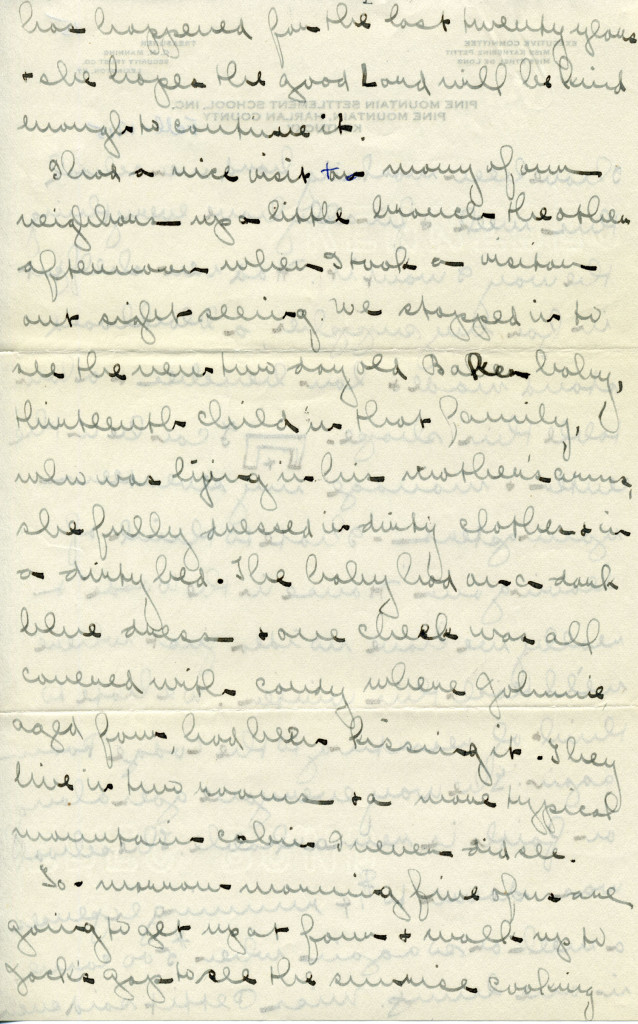 has happened for the last twenty years
+ she hopes the good Lord will be kind
enough to continue it.
I had a nice visit to many of our
neighbors up a little branch the other
afternoon when I took a visitor
out sight seeing. We stopped in to
see the new two day old Baker baby,
thirteenth child in that family,
who was lying in his mother's arms,
she fully dressed in dirty clothes + in
a dirty bed. The baby had on a dark
blue dress + one cheek was all
covered with candy where Johnnie
aged four, had been kissing it. They
live in two rooms + a more typical
mountain cabin I never did see.
To-morrow morning five of us are
going to get up at four + walk up to
Jack's gap to see the sunrise cooking
EXECUTIVE COMMITTEE
MISS KATHERINE PETTIT
TREASURER
C. N. MANNING
SECURITY TRUST CO.
PINE MOUNTAIN SETTLEMENT SCHOOL, INC.
PINE MOUNTAIN, HARLAN COUNTY